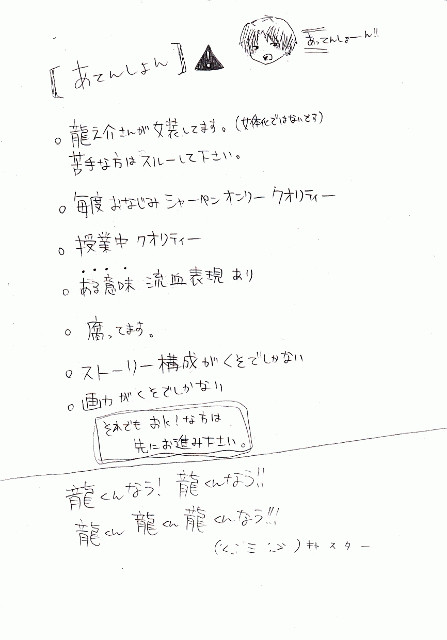 [あてんしょん]
あってんしょーん!!
○ 龍之介さんが女装してます。(女体化ではないです)
苦手な方はスルーして下さい。
○ 毎度おなじみ シャーペンオンリー クオリティー
○ 授業中 クオリティー
○ ある意味 流血表現 あり
○ 腐ってます。
○ ストーリー構成がくそでしかない
○ 画力がくそでしかない
それでも ok! な方は
先にお進み下さい。
龍くんなう! 龍くんなう!!
龍くん 龍くん 龍くんなう!!!
キャスター